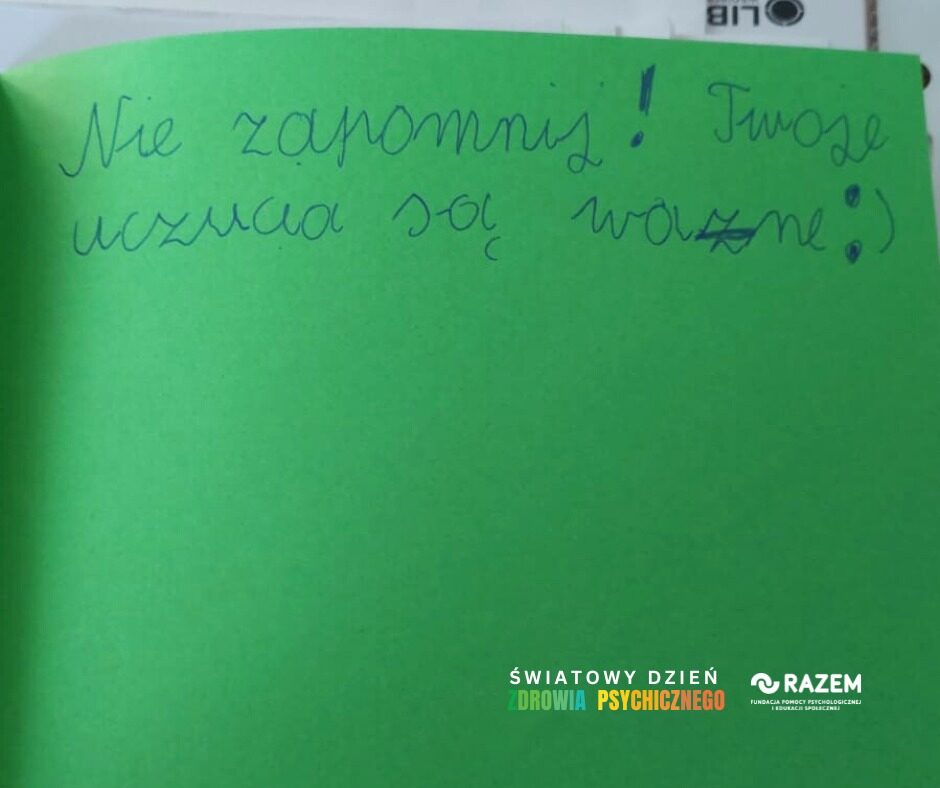 LIB
Nie zapomnij! Twoje
uczucia są ważne :)
ŚWIATOWY DZIEŃ
ZDROWIA PSYCHICZNEGO
RAZEM
FUNDACJA POMOCY PSYCHOLOGICZNEJ
I EDUKACJI SPOŁECZNEJ